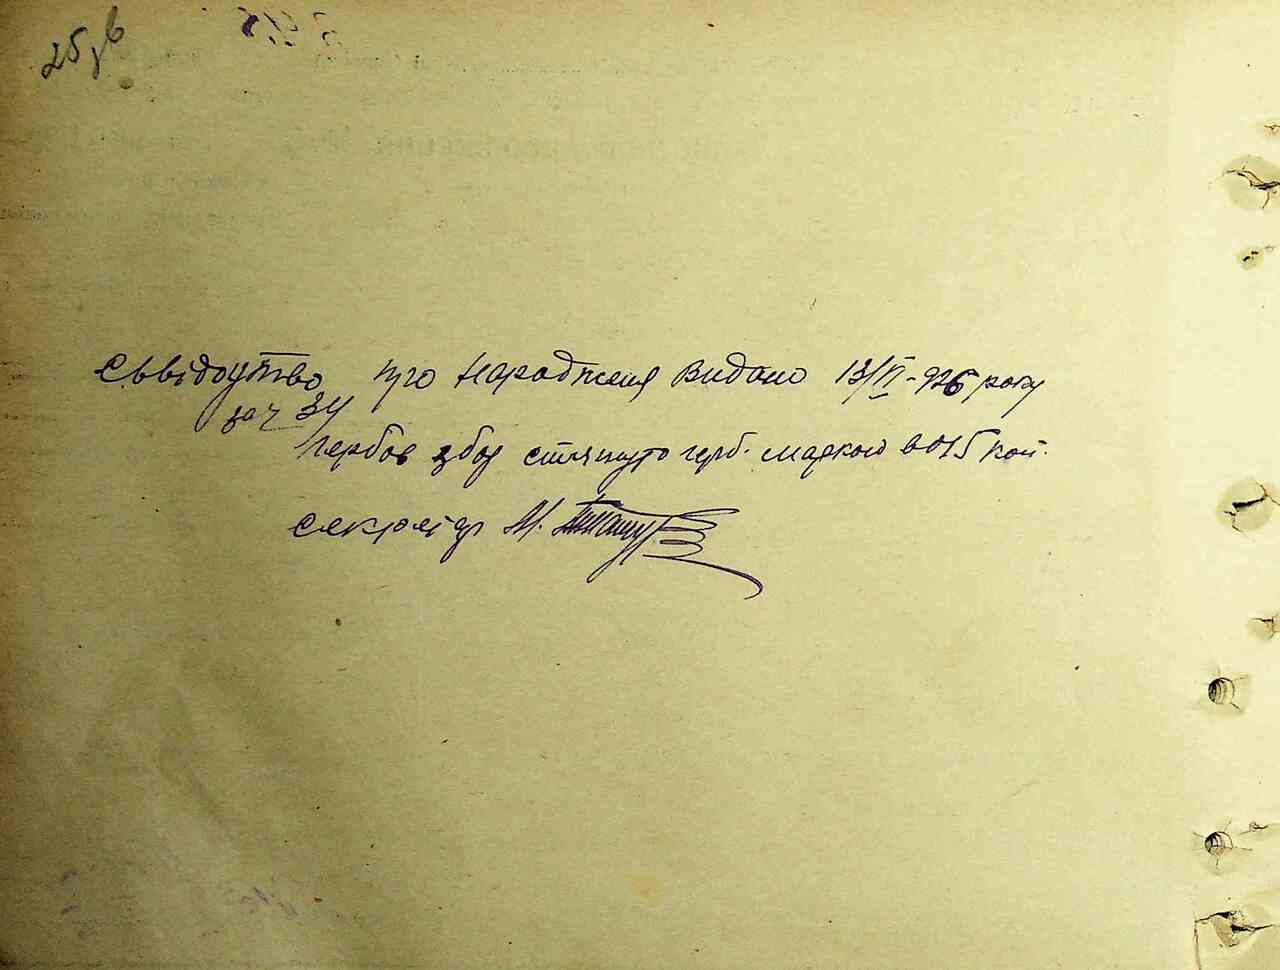 25 зв
Сьвідоцтво про народження видано 13/VI-926 року
за ч 34
Гербов збор стягнуто герб. маркою в 015 коп.
секретар М.